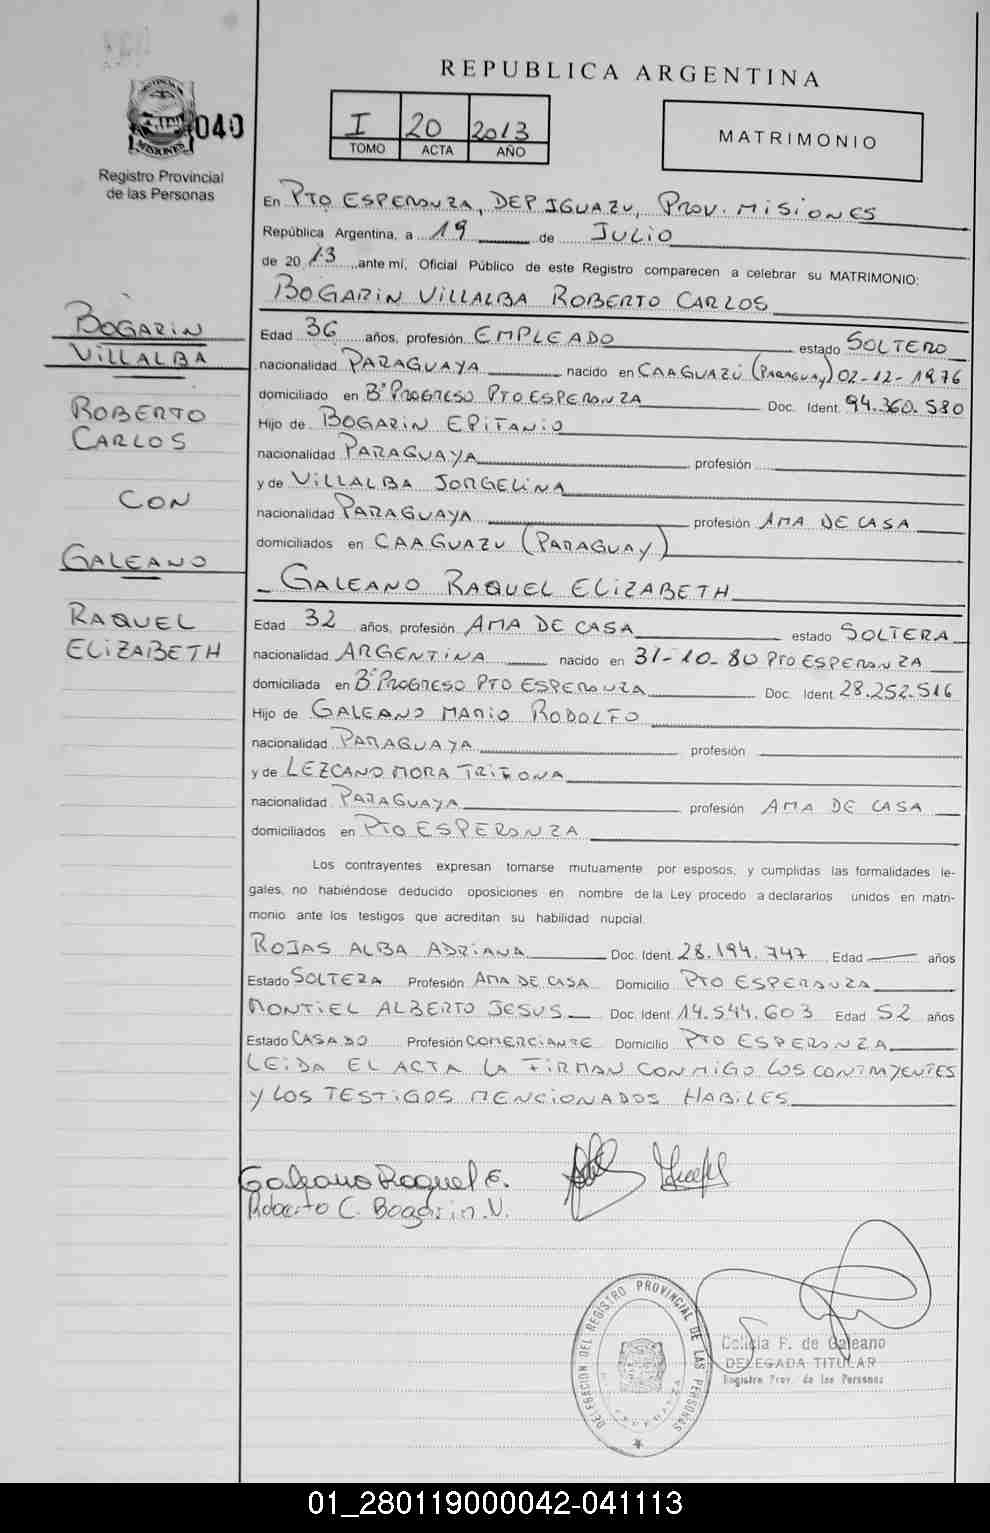 REPUBLICA ARGENTINA
040
MISIONES
Registro Provincial
de las Personas
I 20 2013
TOMO ACTA AÑO
MATRIMONIO
En PTO ESPERANZA, DEP IGUAZU, PROV. MISIONES
República Argentina, a 19 de JULIO
de 2013, ante mí, Oficial Público de este Registro comparecen a celebrar su MATRIMONIO:
BOGARIN VILLALBA ROBERTO CARLOS
BOGARIN
VILLALBA
ROBERTO
CARLOS
CON
GALEANO
RAQUEL
ELIZABETH
Edad 36 años, profesión EMPLEADO estado SOLTERO
nacionalidad PARAGUAYA nacido en CAAGUAZÚ (PARAGUAY) 02-12-1976
domiciliado en Bº PROGRESO PTO ESPERANZA Doc. Ident. 94.360.580
Hijo de BOGARIN EPIFANIO
nacionalidad PARAGUAYA profesión
y de VILLALBA JORGELINA
nacionalidad PARAGUAYA profesión AMA DE CASA
domiciliados en CAAGUAZU (PARAGUAY)
GALEANO RAQUEL ELIZABETH
Edad 32 años, profesión AMA DE CASA estado SOLTERA
nacionalidad ARGENTINA nacido en 31-10-80 PTO ESPERANZA
domiciliada en Bº PROGRESO PTO ESPERANZA Doc. Ident. 28.252.516
Hijo de GALEANO MARIO RODOLFO
nacionalidad PARAGUAYA profesión
y de LEZCANO MORA TRIFONA
nacionalidad PARAGUAYA profesión AMA DE CASA
domiciliados en PTO ESPERANZA
Los contrayentes expresan tomarse mutuamente por esposos, y cumplidas las formalidades le-
gales, no habiéndose deducido oposiciones en nombre de la Ley procedo a declararlos unidos en matri-
monio ante los testigos que acreditan su habilidad nupcial.
ROJAS ALBA ADRIANA Doc. Ident. 28.194.747 Edad — años
Estado SOLTERA Profesión AMA DE CASA Domicilio PTO ESPERANZA
MONTIEL ALBERTO JESUS Doc. Ident. 14.544.603 Edad 52 años
Estado CASADO Profesión COMERCIANTE Domicilio PTO ESPERANZA
LEIDA EL ACTA LA FIRMAN CONMIGO LOS CONTRAYENTES
Y LOS TESTIGOS MENCIONADOS HABILES
Galeano Raquel E.
Roberto C. Bogarin.V.
DELEGACION DEL REGISTRO PROVINCIAL DE LAS PERSONAS
Colicia F. de Galeano
DELEGADA TITULAR
Registro Prov. de las Personas
01_280119000042-041113